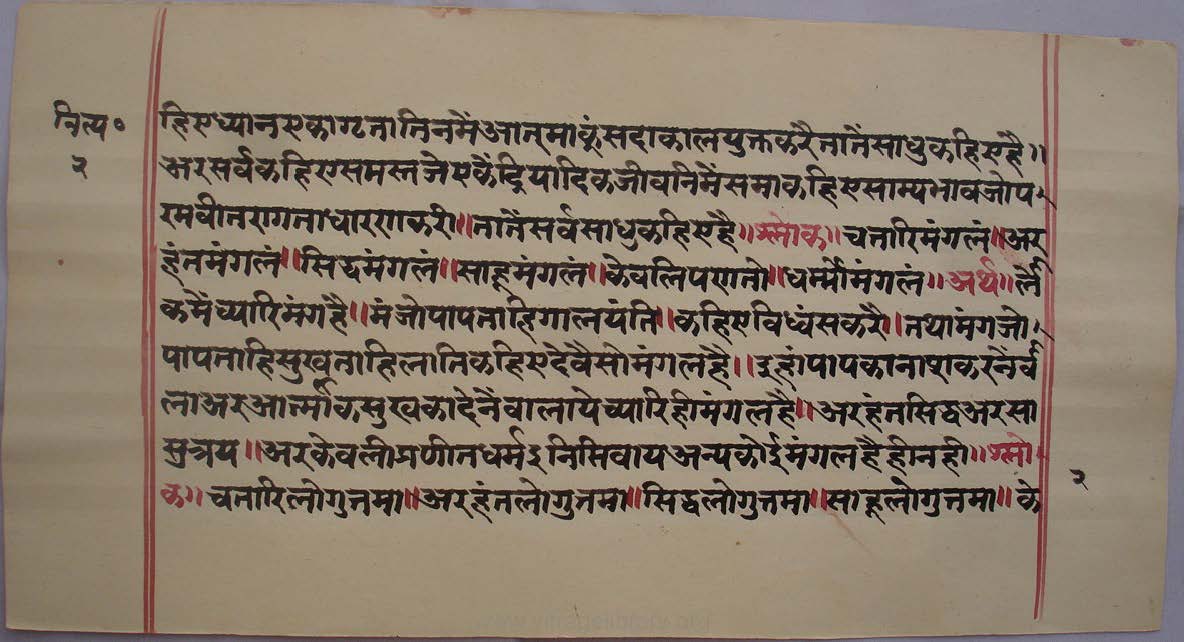 नित्य॰
२
हिएध्यानएकाग्रतातिनमैंआत्माकूंसदाकालयुक्तकरैतानैंसाधुकहिएहै॥
अरसर्वकहिएसमस्तजेएकेंद्रियादिकजीवनिमैंसमाकहिएसाम्यभावजोप
रमवीतरागताधारणाकरी॥तानैंसर्वसाधुकहिएहै॥श्लोक॥चत्तारिमंगलं॥अर
हंतमंगलं॥सिद्धमंगलं॥साहूमंगलं॥केवलिपणत्तो॥धर्म्मोमंगलं॥अर्थ॥लो
कमैंच्यारिमंगहै॥मंजोपापताहिगालयंति॥कहिएविध्वंसकरै॥तथामंगजो
पापताहिसुखताहिलातिकहिएदेवैसोमंगलहै॥इहांपापकानाशकरनैंर्व
लाअरुआत्मीकसुखकादेनैंवालायेच्यारिहीमंगलहै॥अरहंतसिद्धअरसा
धुत्रय॥अरकेवलीप्रणीतधर्मइनिसिवायअन्यकोईमंगलहैहीनही॥श्लो
क॥चत्तारिलोगुत्तमा॥अरहंतलोगुत्तमा॥सिद्धलोगुत्तमा॥साहूलोगुत्तमा॥के
२